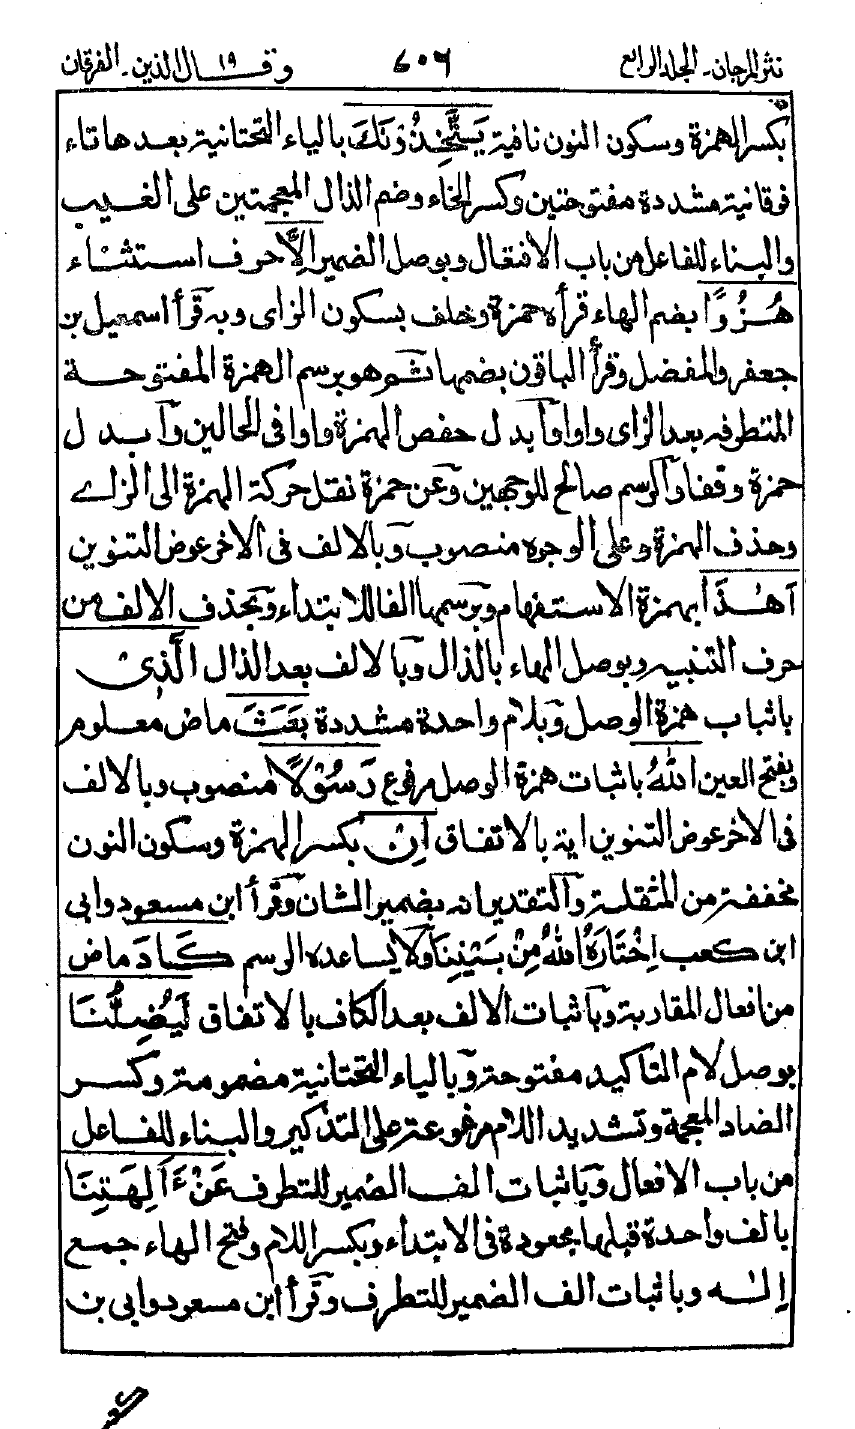 نثر المرجان۔ الجلد الرابع ٤٠٦ وقال الذين ١٩ ۔ الفرقان
بكسر الهمزة وسكون النون نافية يَتَّخِذُوْنَكَ بالياء التحتانية بعدها تاء
فوقانية مشددة مفتوحتين وكسر الخاء وضم الذال المعجمتين على الغيب
والبناء للفاعل من باب الافتعال وبوصل الضمير اِلَّا حرف استثناء
هُزُوًا بضم الهاء قرأه حمزة وخلف بسكون الزاى وبه قرأ اسمعيل بن
جعفر والمفضل وقرأ الباقون بضمها ثم هو برسم الهمزة المفتوحة
المتطرفه بعد الزاى واوا وآبدل حفص الهمزة واوا فى الحالين وآبدل
حمزة وقفا والرسم صالح للوجهين وعن حمزة نقل حركة الهمزة الى الزاے
وحذف الهمزة وعلى الوجوه منصوب وبالالف فى الاخر عوض التنوين
اَهٰذَا بهمزة الاستفهام وبرسمها الفا للابتداء وبحذف الالف من
حرف التنبيه وبوصل الهاء بالذال وبالالف بعد الذال الَّذِىْ
باثبات همزة الوصل وبلام واحدة مشددة بَعَثَ ماض معلوم
وبفتح العين اللهُ باثبات همزة الوصل مرفوع رَسُوْلًا منصوب وبالالف
فى الاخر عوض التنوين اية بالاتفاق اِنْ بكسر الهمزة وسكون النون
مخففة من المثقلة والتقدير انه بضمير الشان وقرأ ابن مسعود وابى
ابن كعب اِخْتَارَهُ اللهُ مِنْ بَيْنِنَا ولا يساعده الرسم كَادَ ماض
من افعال المقاربة وباثبات الالف بعد الكاف بالاتفاق لَيُضِلُّنَا
بوصل لام التاكيد مفتوحة وبالياء التحتانية مضمومة وكسر
الضاد المعجمة وتشديد اللام مرفوعة على التذكير والبناء للفاعل
من باب الافعال وباثبات الف الضمير للتطرف عَنْ ءَالِهَتِنَا
بالف واحدة قبلها مجعودة فى الابتداء وبكسر اللام وفتح الهاء جمع
اِلٰه وباثبات الف الضمير للتطرف وقرأ ابن مسعود وابى بن
كعب